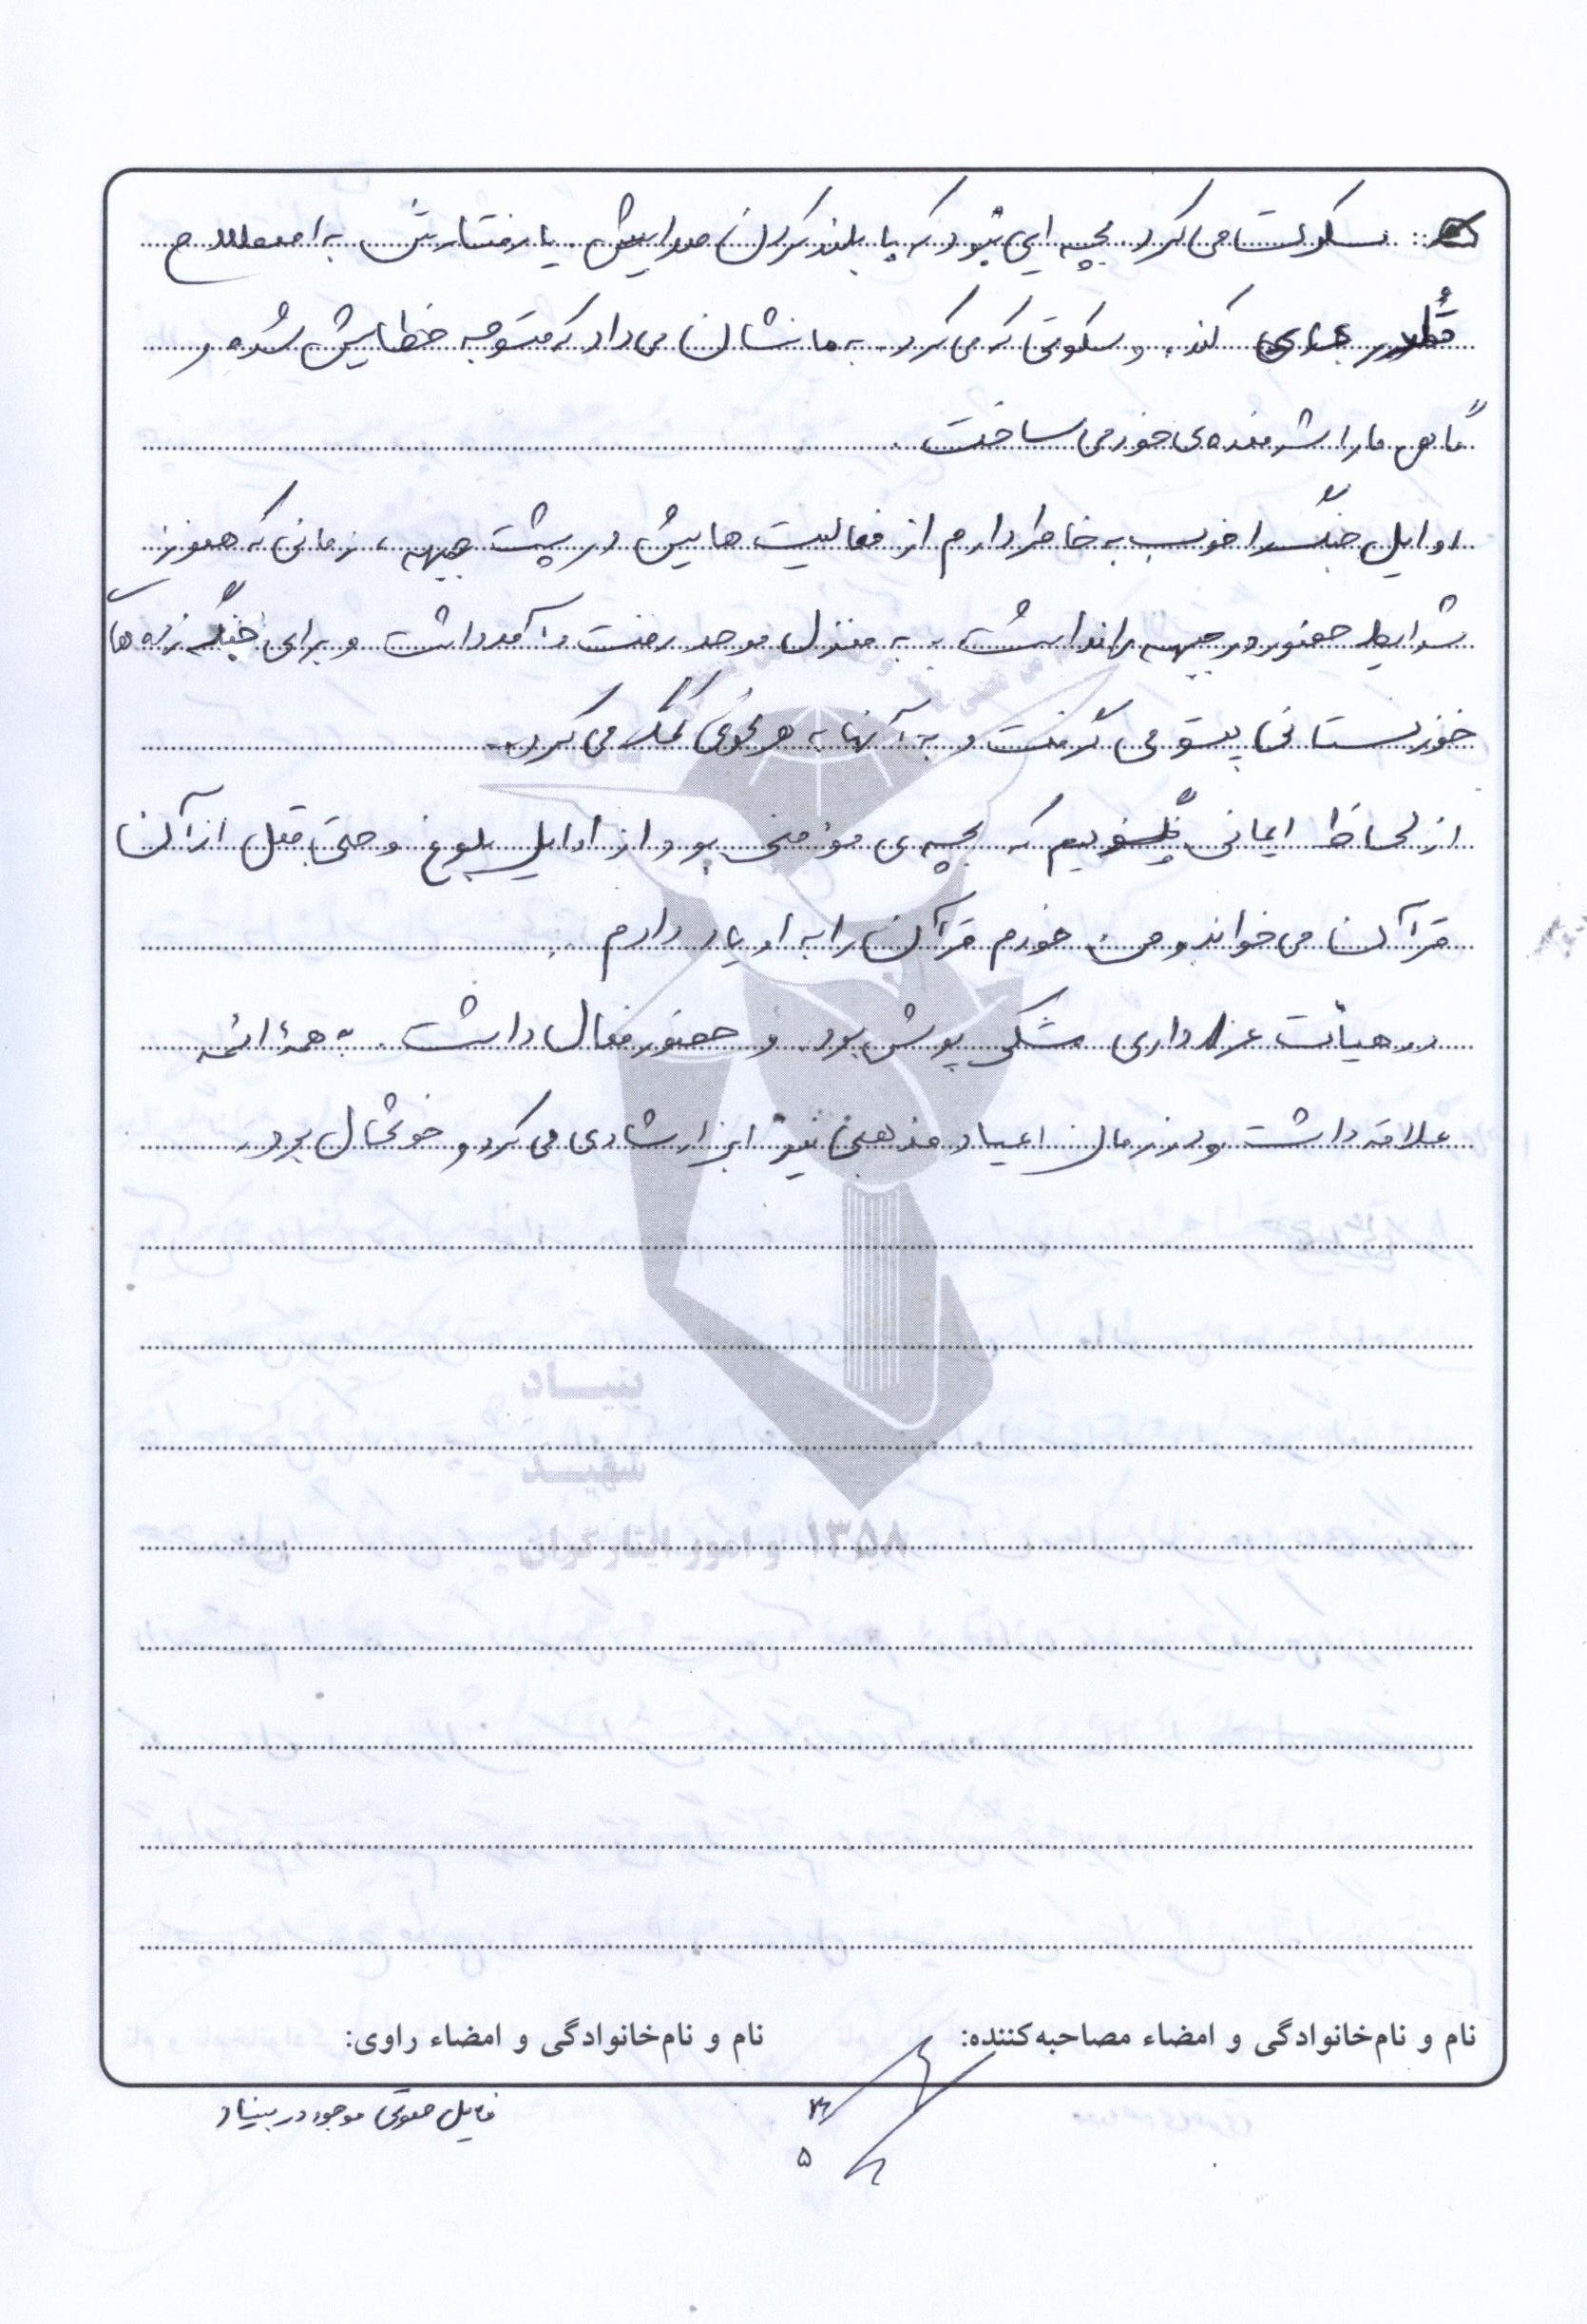 سکوت می کرد. بچه ای نبود که با بلند کردن صدایش یا رفتارش به اصطلاح
قُلدر بازی کند. و سکوتی که می کرد به ما نشان می داد که متوجه خطایش شده و
گاهی ما را شرمنده ی خود می ساخت.
اوایل جنگ را خوب به خاطر دارم از فعالیت هایش در پشت جبهه، زمانی که هنوز
شرایط حضور در جبهه را نداشت. به منزل موحد رفت و آمد داشت و برای جنگ زده ها
خوزستانی پتو می گرفت و به آنها به هر نحوی کمک می کرد.
از لحاظ ایمانی بگویم که بچه ی مؤمنی بود و از اوایل بلوغ و حتی قبل از آن
قرآن می خواند و من خودم قرآن را به او یاد دادم.
در هیأت عزاداری مشکی پوش بود. و حضور فعال داشت. به همهٔ ائمه
علاقه داشت و در زمان اعیاد مذهبی نیز ابراز شادی می کرد و خوشحال بود.
بنیاد
شهید
۱۳۵۸ و امور ایثارگران
نام و نام خانوادگی و امضاء مصاحبه کننده: نام و نام خانوادگی و امضاء راوی:
فایل صوتی موجود در بنیاد
۵